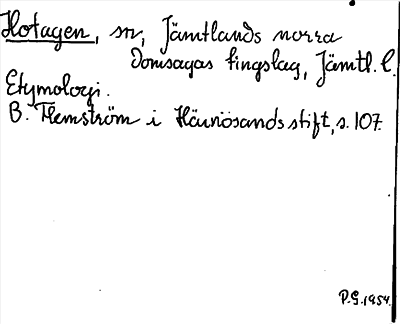 Hotagen, sn, Jämtlands norra
domsagas tingslag, Jämtl. l.
Etymologi.
B. Flemström i Härnösands stift, s. 107.
P.G. 1954.